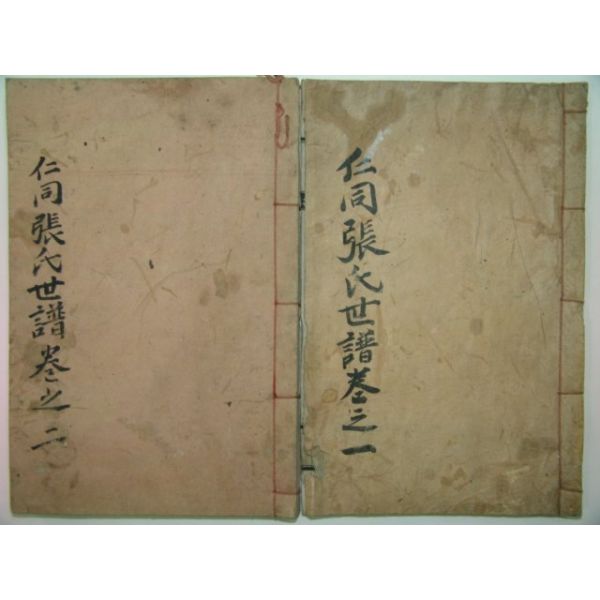 仁同張氏世譜卷之一
仁同張氏世譜卷之二